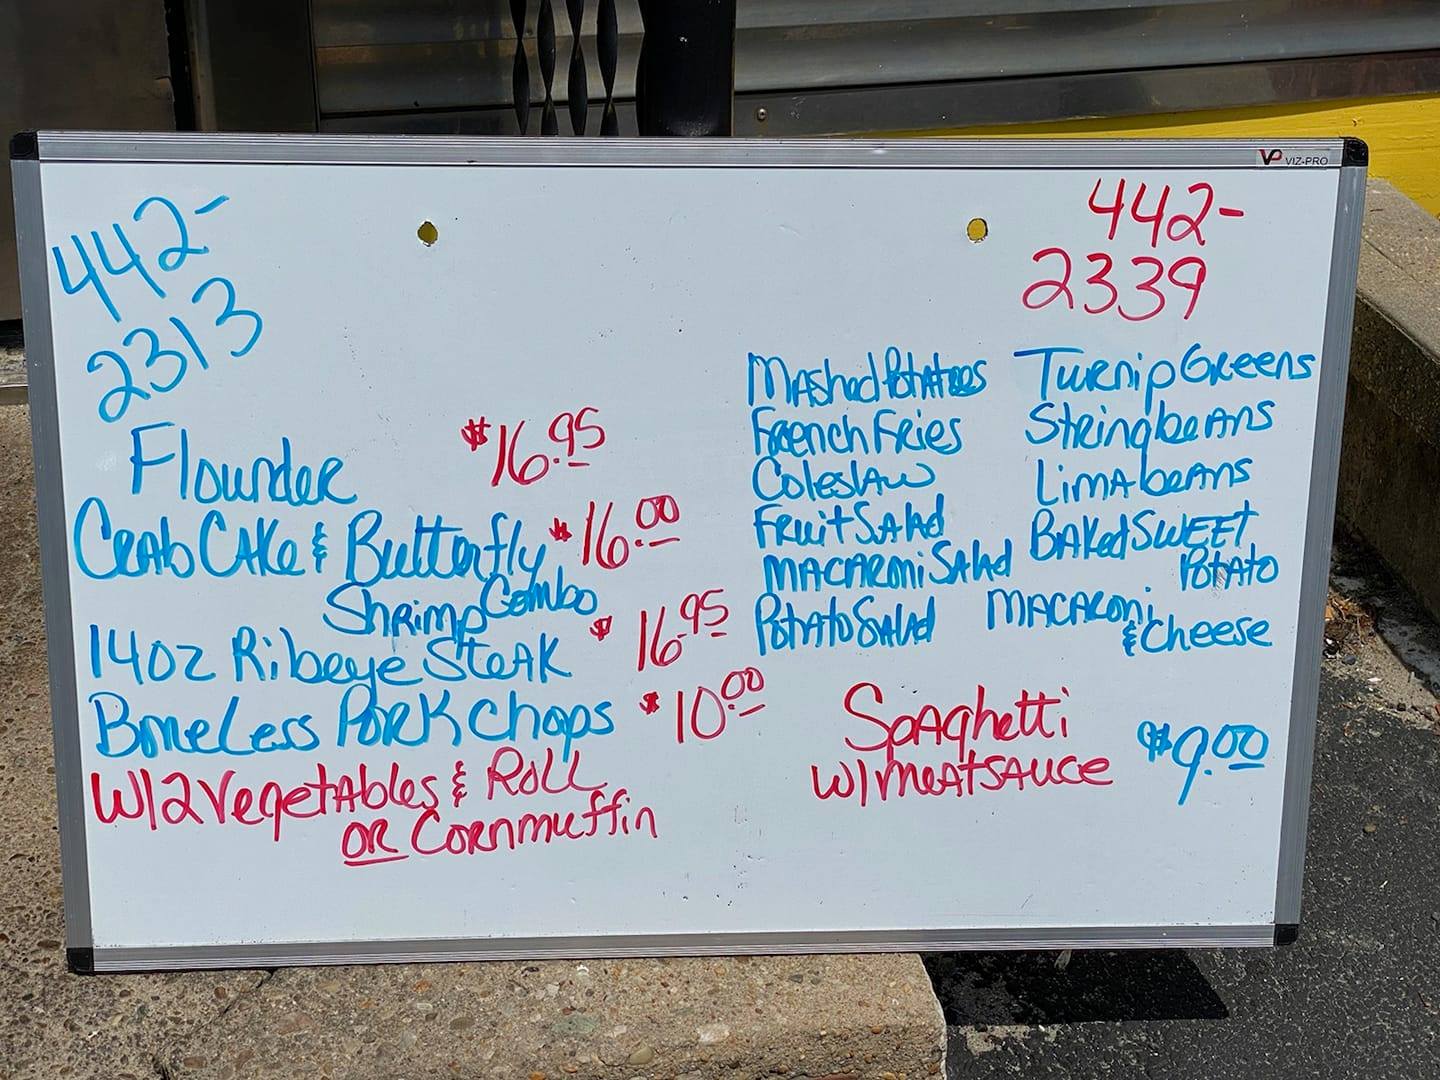 VP VIZ-PRO
442-
2313
442-
2339
Flounder $16.95
Crab Cake & Butterfly $16.00
Shrimp Combo
14oz Ribeye Steak $16.95
Boneless Pork Chops $10.00
W/2 Vegetables & Roll
OR Cornmuffin
Mashed Potatoes
French Fries
Coleslaw
Fruit Salad
Macaroni Salad
Potato Salad
Turnip Greens
Stringbeans
Lima beans
Baked Sweet
Potato
Macaroni
& Cheese
Spaghetti $9.00
W/meatsauce